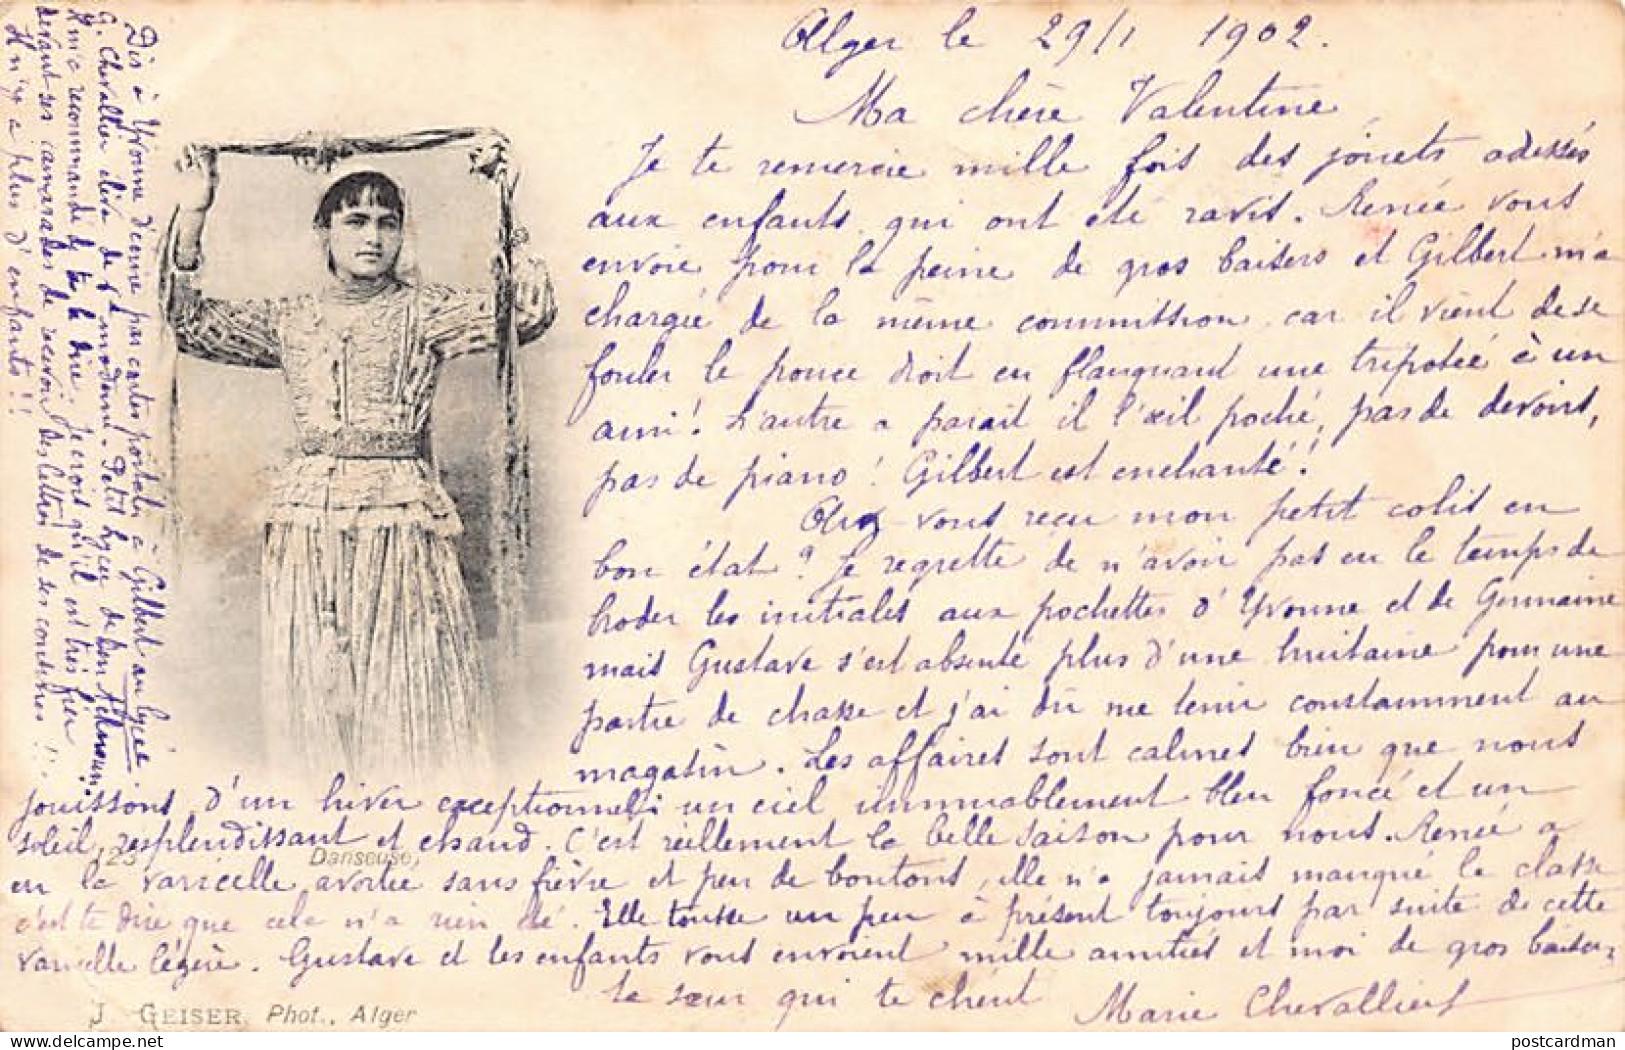 Alger le 29/1 1902.
Ma chère Valentine
Je te remercie mille fois des jouets adessés
aux enfants qui ont été ravis. Renée vous
envoie pour la peine de gros baisers et Gilbert m'a
chargée de la même commission car il vient de se
fouler le pouce droit en flanquant une tripotée à un
ami! L'autre a parait il l'œil poché, pas de devoirs,
pas de piano! Gilbert est enchanté!
Avez vous reçu mon petit colis en
bon état? Je regrette de n'avoir pas eu le temps de
broder les initiales aux pochettes d'Yvonne et de Germaine
mais Gustave s'est absenté plus d'une huitaine pour une
partie de chasse et j'ai dû me tenir constamment au
magasin. Les affaires sont calmes bien que nous
jouissions d'un hiver exceptionnel: un ciel immuablement bleu foncé et un
soleil resplendissant et chaud. C'est réellement la belle saison pour nous. Renée a
eu la varicelle avortée sans fièvre et peu de boutons, elle n'a jamais manqué la classe
c'est te dire que cela n'a rien été. Elle tousse un peu à présent toujours par suite de cette
varicelle légère. Gustave et les enfants vous envoient mille amitiés et moi de gros baisers
ta sœur qui te chérit Marie Chevallier
Dis à Yvonne d'écrire par cartes postales à Gilbert au lycée
G. Chevallier élève de moderne. Petit lycée de Ben Aknoun.
Il m'a recommandé de te le dire. Je crois qu'il est très fier
devant ses camarades de recevoir des lettres de ses cousines!!
Il n'y a plus d'enfants!!
123 Danseuse,
J. GEISER, Phot., Alger
postcardman